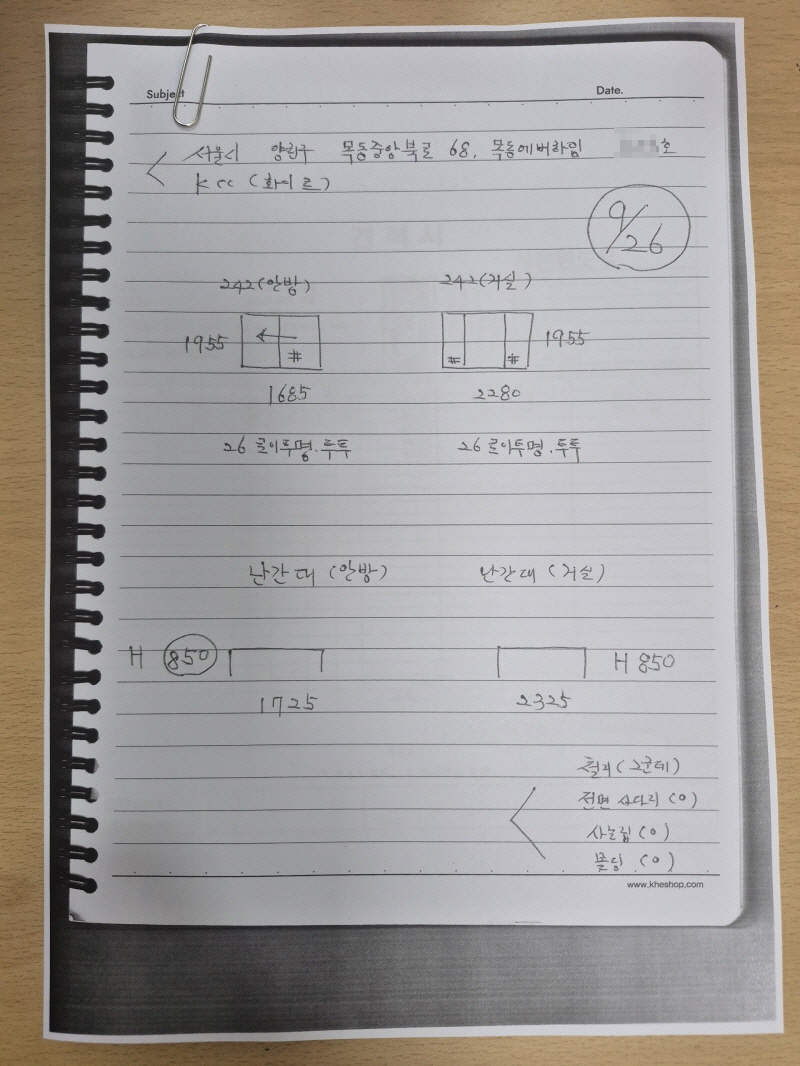 Subject Date.
서울시 양천구 목동중앙북로 68, 목동에버하임 호
kcc (화이트)
9/26
242(안방) 242(거실)
1955 1955
1685 2280
26 로이투명.투투 26 로이투명.투투
난간대 (안방) 난간대 (거실)
H 850 H 850
1725 2325
철거(2군데)
전면 사다리(O)
사는집(O)
몰딩 (O)
www.kheshop.com